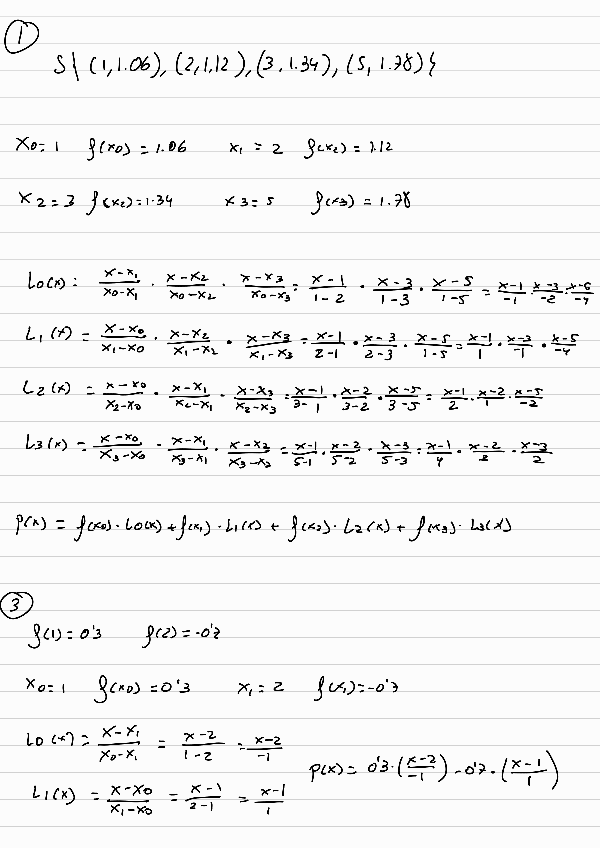 ①
S\ (1,1.06), (2,1,12), (3,1.34), (5,1.78)}
x0=1 f(x0)=1.06 x1 = 2 f(x2) = 1.12
x2=3 f(x2)=1.34 x3=5 f(x3) = 1.78
L0(x): (x-x1)/(x0-x1) · (x-x2)/(x0-x2) · (x-x3)/(x0-x3) = (x-1)/(1-2) · (x-3)/(1-3) · (x-5)/(1-5) = (x-1)/-1 · (x-3)/-2 · (x-5)/-4
L1(x) = (x-x0)/(x1-x0) · (x-x2)/(x1-x2) · (x-x3)/(x1-x3) = (x-1)/(2-1) · (x-3)/(2-3) · (x-5)/(1-5) = (x-1)/1 · (x-3)/-1 · (x-5)/-4
L2(x) = (x-x0)/(x2-x0) · (x-x1)/(x2-x1) · (x-x3)/(x2-x3) = (x-1)/(3-1) · (x-2)/(3-2) · (x-5)/(3-5) = (x-1)/2 · (x-2)/1 · (x-5)/-2
L3(x) = (x-x0)/(x3-x0) · (x-x1)/(x3-x1) · (x-x2)/(x3-x2) = (x-1)/(5-1) · (x-2)/(5-2) · (x-3)/(5-3) = (x-1)/4 · (x-2)/3 · (x-3)/2
P(x) = f(x0)·L0(x) + f(x1)·L1(x) + f(x2)·L2(x) + f(x3)·L3(x)
③
f(1) = 0'3 f(2) = -0'7
x0=1 f(x0) = 0'3 x1 = 2 f(x1) = -0'7
L0(x) = (x-x1)/(x0-x1) = (x-2)/(1-2) = (x-2)/-1
P(x) = 0'3·((x-2)/-1) - 0'7·((x-1)/1)
L1(x) = (x-x0)/(x1-x0) = (x-1)/(2-1) = (x-1)/1